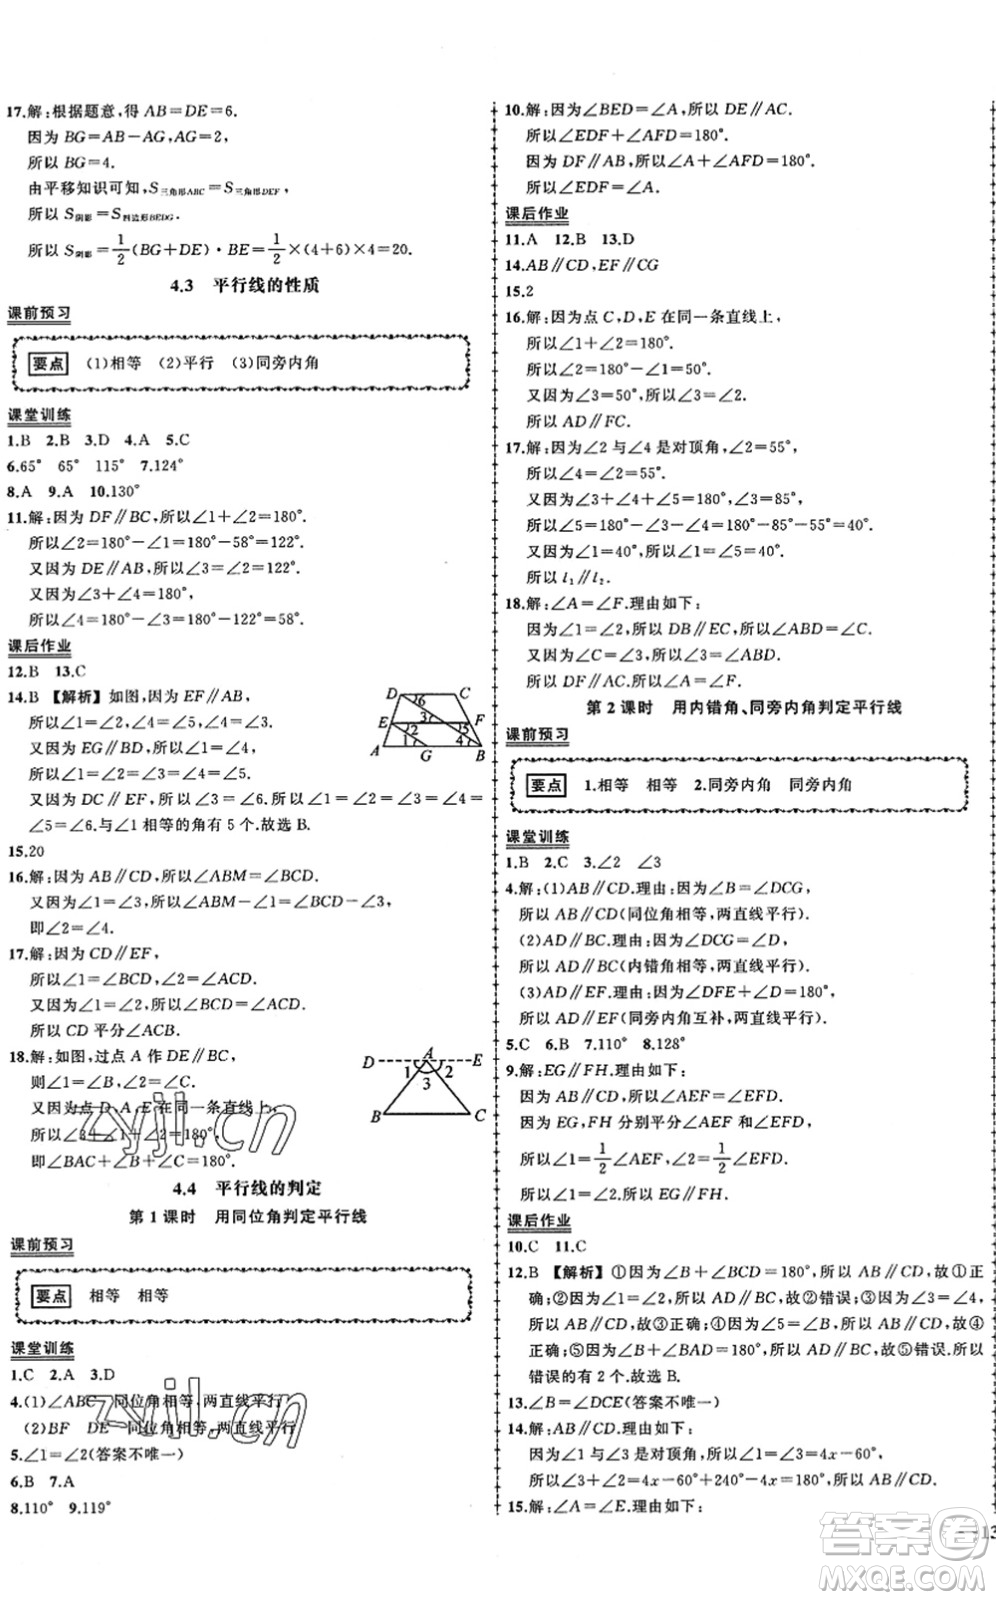 17.解:根据题意,得 AB=DE=6.
因为 BG=AB-AG,AG=2,
所以 BG=4.
由平移知识可知,S三角形ABC=S三角形DEF,
所以 S阴影=S四边形BEDG.
所以 S阴影=1/2(BG+DE)·BE=1/2×(4+6)×4=20.
4.3 平行线的性质
课前预习
要点 (1)相等 (2)平行 (3)同旁内角
课堂训练
1.B 2.B 3.D 4.A 5.C
6.65° 65° 115° 7.124°
8.A 9.A 10.130°
11.解:因为 DF∥BC,所以∠1+∠2=180°.
所以∠2=180°-∠1=180°-58°=122°.
又因为 DE∥AB,所以∠3=∠2=122°.
又因为∠3+∠4=180°,
所以∠4=180°-∠3=180°-122°=58°.
课后作业
12.B 13.C
14.B 【解析】如图,因为 EF∥AB,
所以∠1=∠2,∠3=∠4.
又因为 EG∥BD,所以∠1=∠4,
∠2=∠5.所以∠1=∠3.
又因为 DC∥EF,所以∠3=∠6.所以∠1=∠2=∠3=∠4=
∠5=∠6.与∠1 相等的角有 5 个.故选 B.
D C 6 E 2 3 5 F A 1 G 4 7 B
15.20
16.解:因为 AB∥CD,所以∠ABM=∠BCD.
又因为∠1=∠3,所以∠ABM-∠1=∠BCD-∠3,
即∠2=∠4.
17.解:因为 CD∥EF,
所以∠1=∠BCD,∠2=∠ACD.
又因为∠1=∠2,所以∠BCD=∠ACD.
所以 CD 平分∠ACB.
18.解:如图,过点 A 作 DE∥BC,
则∠1=∠B,∠2=∠C.
又因为点 D、A、E 在同一条直线上,
所以∠3+∠1+∠2=180°.
即∠BAC+∠B+∠C=180°.
D A E 1 2 3 B C
4.4 平行线的判定
第 1 课时 用同位角判定平行线
课前预习
要点 相等 相等
课堂训练
1.C 2.A 3.D
4.(1)∠ABC 同位角相等,两直线平行
(2)BF DE 同位角相等,两直线平行
5.∠1=∠2(答案不唯一)
6.B 7.A
8.110° 9.119°
10.解:因为∠BED=∠A,所以 DE∥AC.
所以∠EDF+∠AFD=180°.
因为 DF∥AB,所以∠A+∠AFD=180°.
所以∠EDF=∠A.
课后作业
11.A 12.B 13.D
14.AB∥CD,EF∥CG
15.2
16.解:因为点 C,D,E 在同一条直线上,
所以∠1+∠2=180°.
所以∠2=180°-∠1=50°.
又因为∠3=50°,所以∠3=∠2.
所以 AD∥FC.
17.解:因为∠2 与∠4 是对顶角,∠2=55°,
所以∠4=∠2=55°.
又因为∠3+∠4+∠5=180°,∠3=85°,
所以∠5=180°-∠3-∠4=180°-85°-55°=40°.
又因为∠1=40°,所以∠1=∠5.
所以 l₁∥l₂.
18.解:∠A=∠F.理由如下:
因为∠1=∠2,所以 DB∥EC,所以∠ABD=∠C.
又因为∠C=∠3,所以∠3=∠ABD.
所以 DF∥AC.所以∠A=∠F.
第 2 课时 用内错角、同旁内角判定平行线
课前预习
要点 1.相等 相等 2.同旁内角 同旁内角
课堂训练
1.B 2.C 3.∠2 ∠3
4.解:(1)AB∥CD.理由:因为∠B=∠DCG,
所以 AB∥CD(同位角相等,两直线平行).
(2)AD∥BC.理由:因为∠DCG=∠D,
所以 AD∥BC(内错角相等,两直线平行).
(3)AD∥EF.理由:因为∠DFE+∠D=180°,
所以 AD∥EF(同旁内角互补,两直线平行).
5.C 6.B 7.110° 8.128°
9.解:EG∥FH.理由如下:
因为 AB∥CD,所以∠AEF=∠EFD.
因为 EG,FH 分别平分∠AEF 和∠EFD,
所以∠1=1/2∠AEF,∠2=1/2∠EFD.
所以∠1=∠2.所以 EG∥FH.
课后作业
10.C 11.C
12.B 【解析】①因为∠B+∠BCD=180°,所以 AB∥CD,故①正
确;②因为∠1=∠2,所以 AD∥BC,故②错误;③因为∠3=∠4,
所以 AB∥CD,故③正确;④因为∠5=∠B,所以 AB∥CD,故④
正确;⑤因为∠B+∠BAD=180°,所以 AD∥BC,故⑤错误.所以
错误的有 2 个.故选 B.
13.∠B=∠DCE(答案不唯一)
14.解:AB∥CD.理由如下:
因为∠1 与∠3 是对顶角,所以∠1=∠3=4x-60°,
所以∠3+∠2=4x-60°+240°-4x=180°,所以 AB∥CD.
15.解:∠A=∠E.理由如下:
zyjl.cn
zyjl.cn
答案圈
MXQE.COM
13